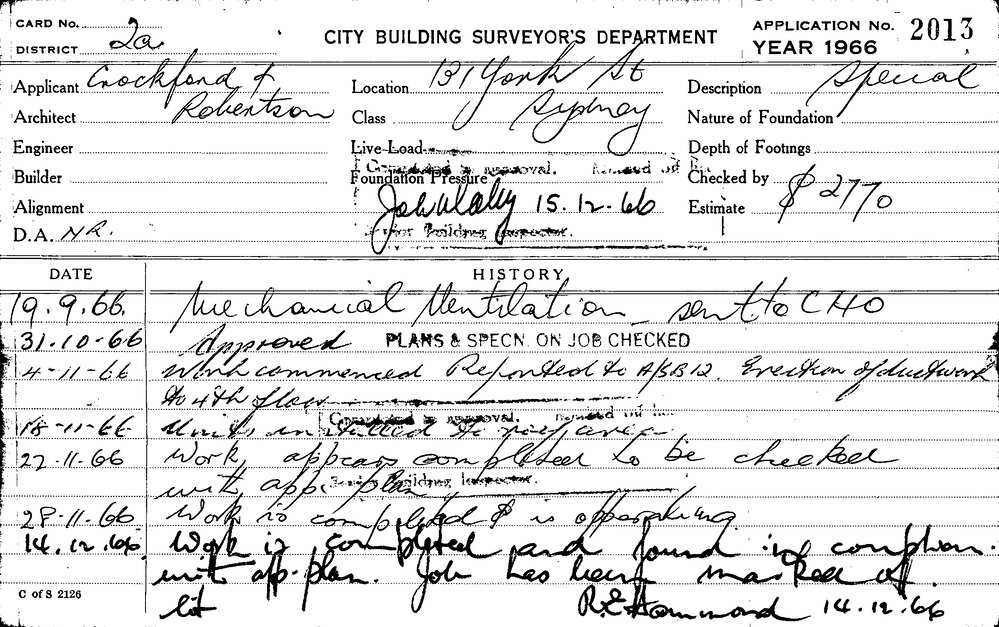 CARD No.
DISTRICT 2a
CITY BUILDING SURVEYOR'S DEPARTMENT
APPLICATION No. 2013
YEAR 1966
Applicant Crockford &
Location 131 York St
Description Special
Architect Robertson
Class Sydney
Nature of Foundation
Engineer
Live Load
Depth of Footings
Completed to approval.
Builder
Foundation Pressure
Checked by
Alignment
John 15.12.66
Estimate $ 2770
D.A. NR.
Senior Building Inspector.
DATE
HISTORY
19.9.66. Mechanical Ventilation - sent to CHO
31.10-66 Approved PLANS & SPECN. ON JOB CHECKED
4-11-66 Work commenced Reported to A/SB12. Erection of ductwork
to 4th floor
Completed to approval.
18-11-66 Units installed to
22.11.66 Work appears completed to be checked
with app. plan
Senior Building Inspector.
28-11-66 Work is completed & is opperating
14.12.66. Work is completed and found in complian.
with app. plan. Job has been marked off
C of S 2126
R.E Hammond 14.12.66